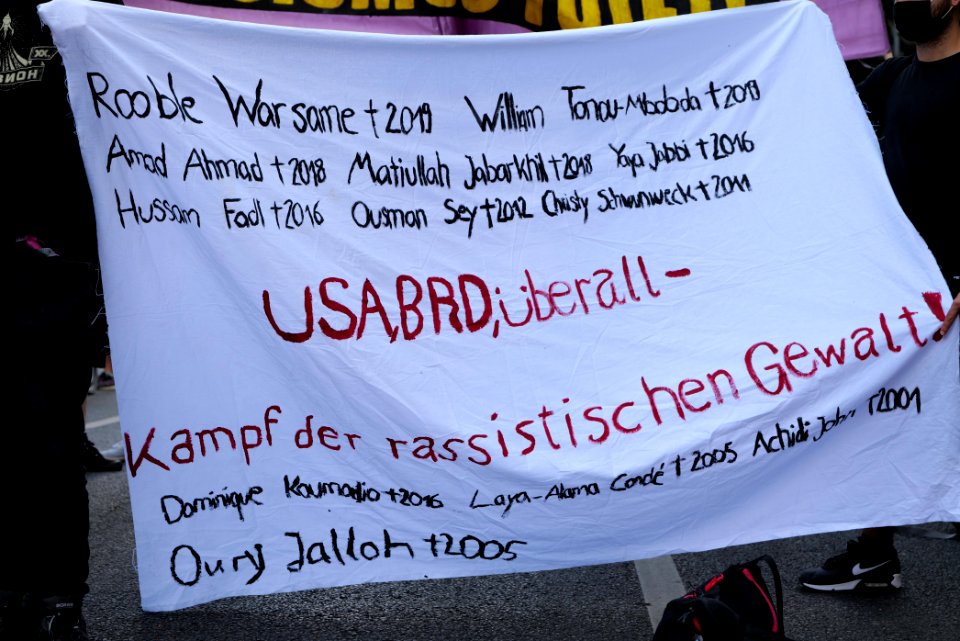 Rooble Warsame †2019 William Tonou-Mbobda †2019
Amad Ahmad †2018 Matiullah Jabarkhil †2018 Yaya Jabbi †2016
Hussam Fadl †2016 Ousman Sey †2012 Christy Schwunweck †2011
USA,BRD,überall-
Kampf der rassistischen Gewalt!
Dominique Koumadio †2016 Laya-Alama Condé †2005 Achidi John †2001
Oury Jalloh †2005